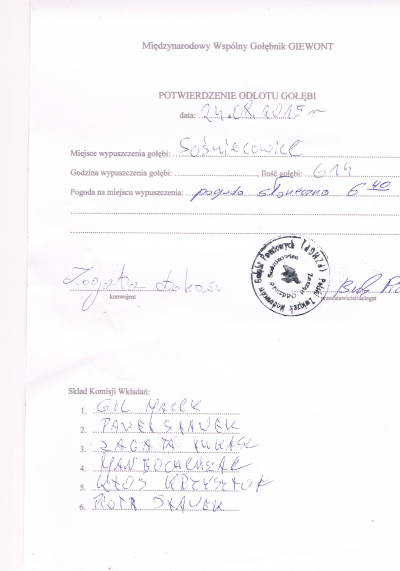 Międzynarodowy Wspólny Gołębnik GIEWONT
POTWIERDZENIE ODLOTU GOŁĘBI
data: 24.08.2015 r
Miejsce wypuszczenia gołębi: Sośniecowice
Godzina wypuszczenia gołębi: , Ilość gołębi: 614
Pogoda na miejscu wypuszczenia: pogoda słoneczna 6 40
Polski Związek Hodowców Gołębi Pocztowych (PZHGP)
Zagata Łukasz
konwojent
przedstawiciel/delegat
Skład Komisji Wkładań:
1. GIL MACEK
2. PAWEŁ SŁAWEK
3. ZAGATA ŁUKASZ
4.
5. KŁOS KRZYSZTOF
6. PIOTR SŁAWEK